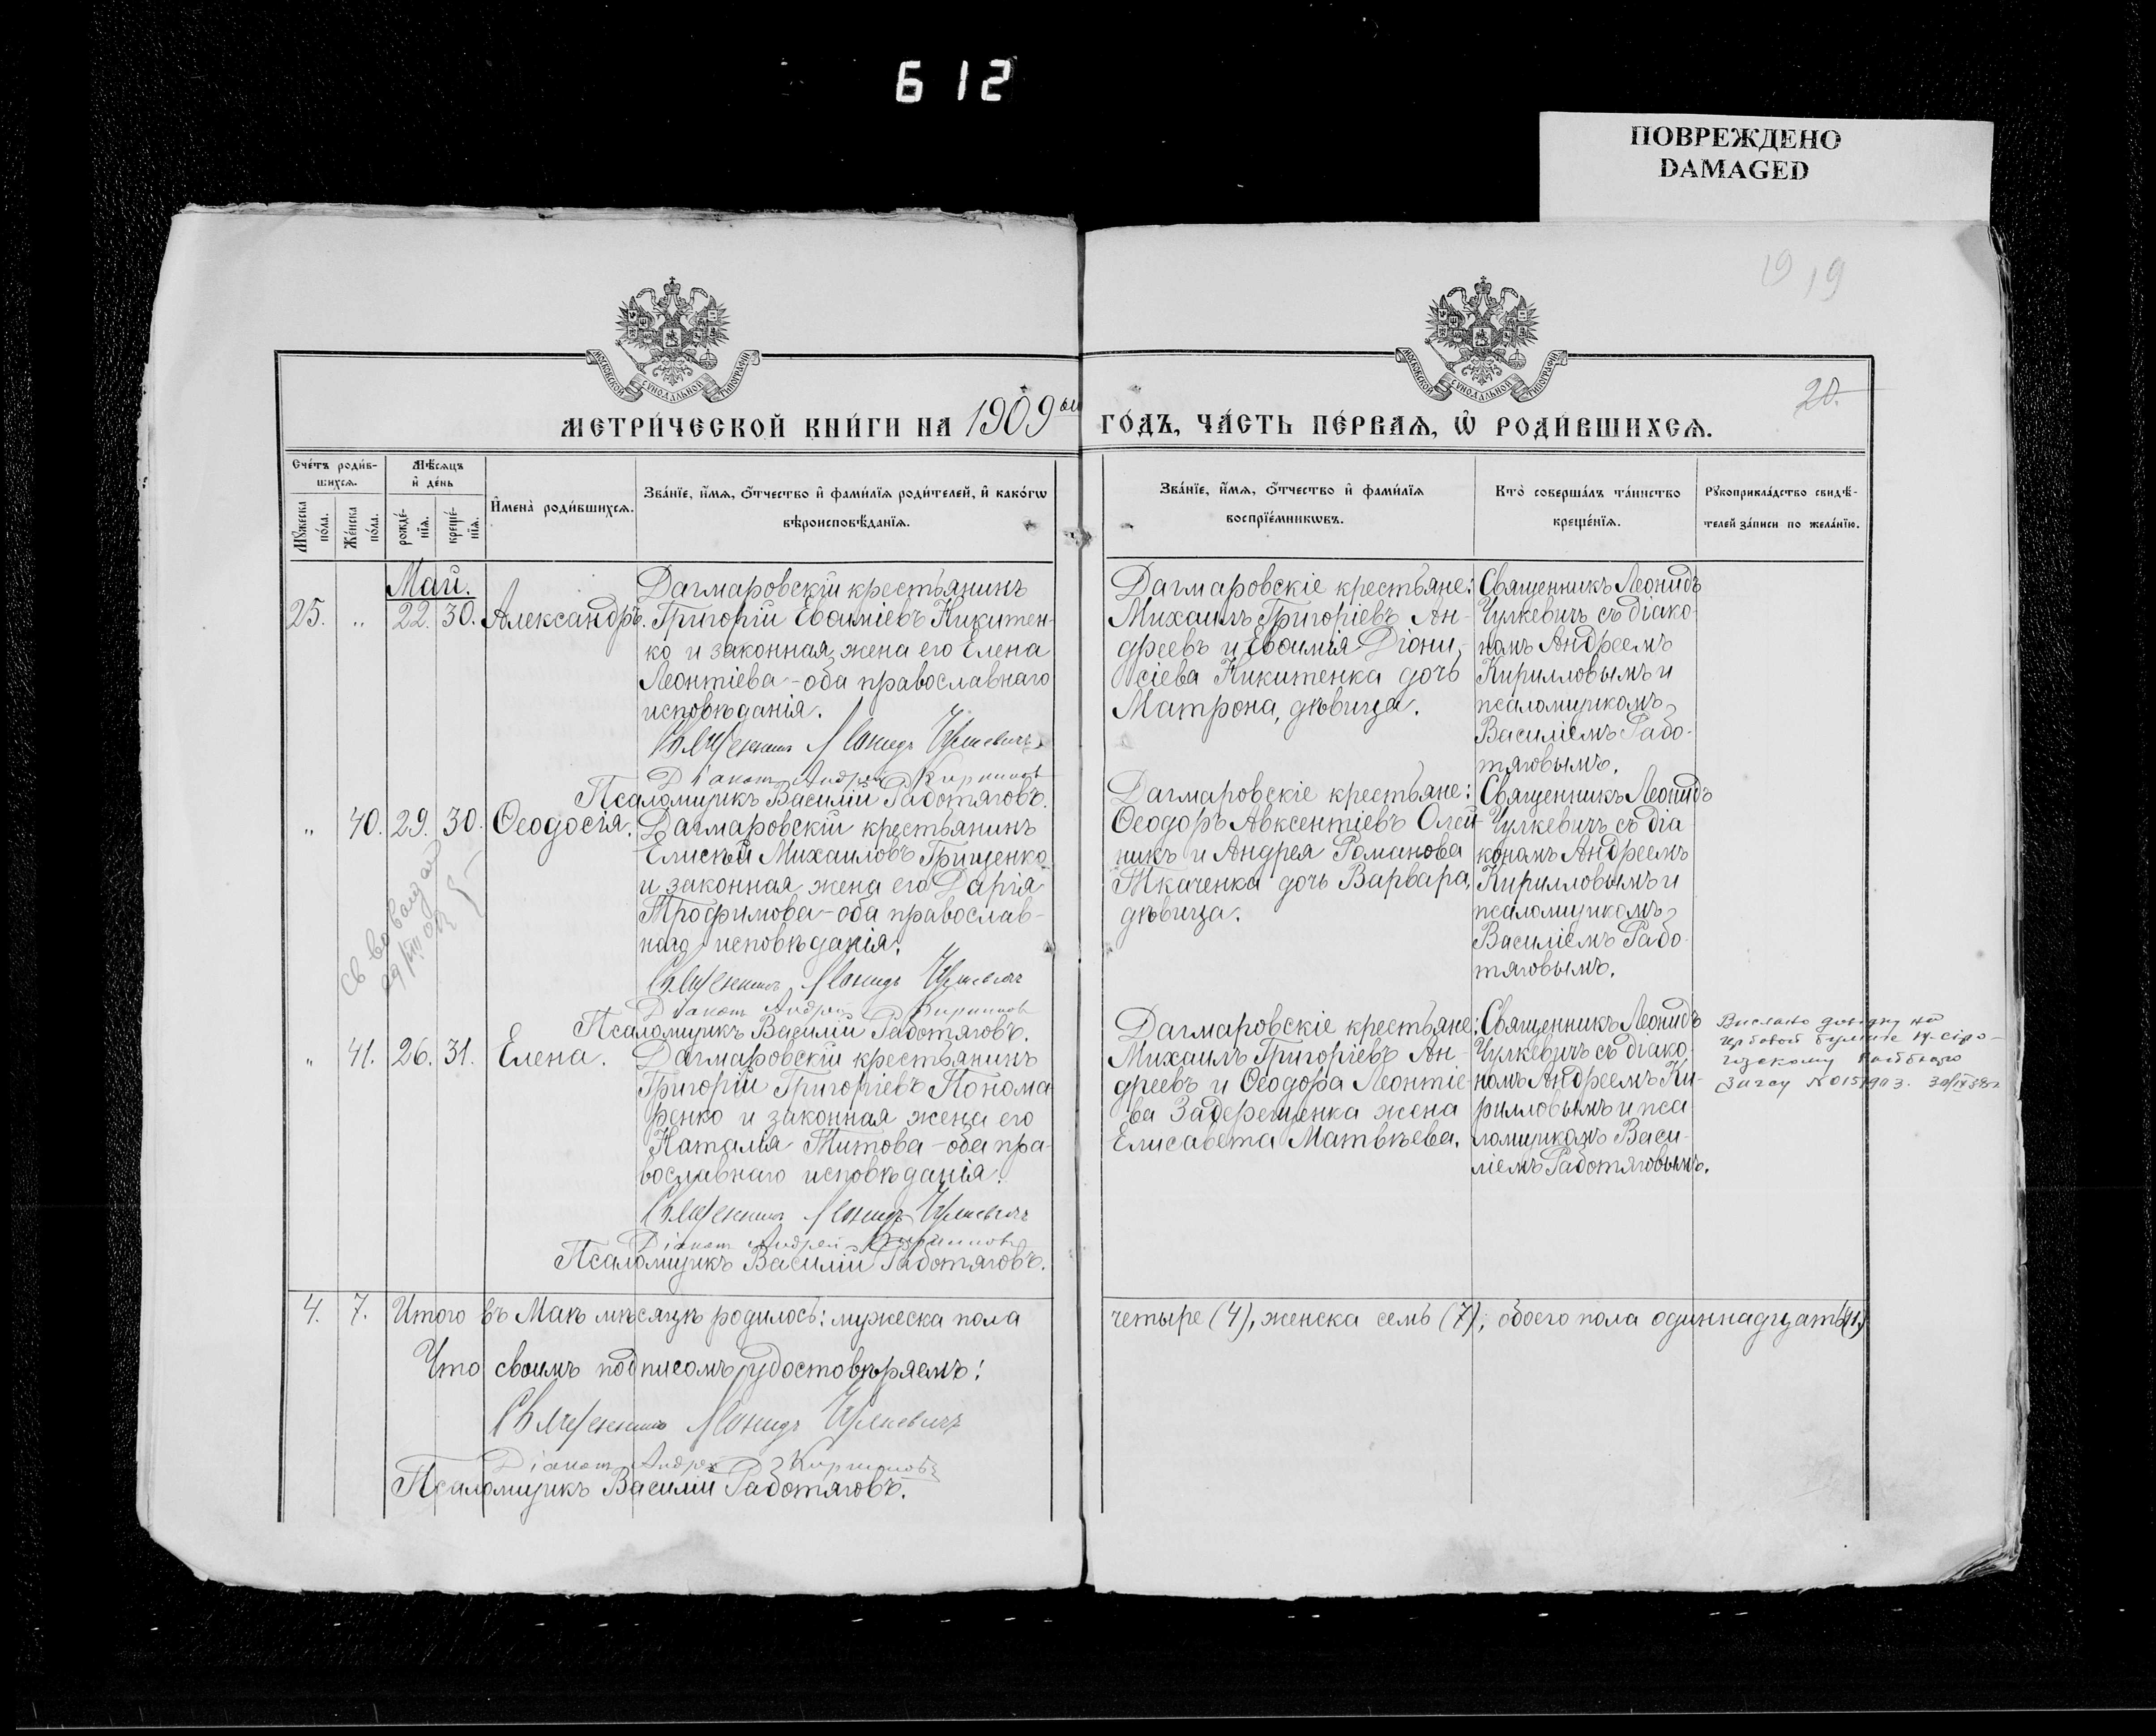 6 12
ПОВРЕЖДЕНО
DAMAGED
19 19
МОСКОВСКОЙ СѴНОДАЛЬНОЙ ТИПОГРАФІИ
МОСКОВСКОЙ СѴНОДАЛЬНОЙ ТИПОГРАФІИ
20.
МЕТРИ́ЧЕСКОЙ КНИ́ГИ НА 1909 ый ГО́ДЪ, ЧА́СТЬ ПЕ́РВАѦ, Ѿ РОДИ́ВШИХСѦ.
Сче́тъ роди́в-
шихсѧ.
Мꙋ́жеска по́ла.
Же́нска по́ла.
Мѣ́сѧцъ
и҆ де́нь
рожде́-
нїѧ.
креще́-
нїѧ.
И҆мена̀ роди́вшихсѧ.
Зва́нїе, и҆́мѧ, ѻ҆́тчество и҆ фами́лїѧ роди́телей, и҆ како́гѡ
вѣроисповѣ́данїѧ.
Зва́нїе, и҆́мѧ, ѻ҆́тчество и҆ фами́лїѧ
воспрїе́мникѡвъ.
Кто̀ соверша́лъ та́инство
креще́нїѧ.
Рꙋкоприкла́дство свидѣ́-
телей за́писи по жела́нїю.
Май.
25. „ 22. 30. Александръ.
Дагмаровскій крестьянинъ
Григорій Евѳиміевъ Никитен-
ко и законная жена его Елена
Леонтіева - оба православнаго
исповѣданія.
Священникъ Леонидъ Чулкевичъ
Діаконъ Андрей Кирилловъ
Псаломщикъ Василій Работяговъ.
Дагмаровскіе крестьяне:
Михаилъ Григоріевъ Ан-
дреевъ и Евѳимія Діони-
сіева Никитенка дочь
Матрона, дѣвица.
Священникъ Леонидъ
Чулкевичъ съ діако-
номъ Андреемъ
Кирилловымъ и
псаломщикомъ
Василіемъ Рабо-
тяговымъ.
„ 40. 29. 30. Ѳеодосія.
Дагмаровскій крестьянинъ
Елисѣй Михаиловъ Грищенко
и законная жена его Дарія
Трофимова - оба православ-
наго исповѣданія.
Священникъ Леонидъ Чулкевичъ
Діаконъ Андрей Кирилловъ
Псаломщикъ Василій Работяговъ.
Дагмаровскіе крестьяне:
Ѳеодоръ Авксентіевъ Олей-
никъ и Андрея Романова
Ткаченка дочь Варвара,
дѣвица.
Священникъ Леонидъ
Чулкевичъ съ діа-
кономъ Андреемъ
Кирилловымъ и
псаломщикомъ
Василіемъ Рабо-
тяговымъ.
„ 41. 26. 31. Елена.
Дагмаровскій крестьянинъ
Григорій Григоріевъ Понома-
ренко и законная жена его
Наталія Титова - оба пра-
вославнаго исповѣданія.
Священникъ Леонидъ Чулкевичъ
Діаконъ Андрей Кирилловъ
Псаломщикъ Василій Работяговъ.
Дагмаровскіе крестьяне:
Михаилъ Григоріевъ Ан-
дреевъ и Ѳеодора Леонтіе-
ва Задерешенка жена
Елисавета Матвѣева.
Священникъ Леонидъ
Чулкевичъ съ діако-
номъ Андреемъ Ки-
рилловымъ и пса-
ломщикомъ Васи-
ліемъ Работяговымъ.
Вислано довідку на
гербовой бумаге Н-Сіро-
гузскому
Загсу № 0151903.
4. 7. Итого въ Маѣ мѣсяцѣ родилось: мужеска пола четыре (4), женска семь (7), обоего пола одиннадцать (11)
Что своимъ подписомъ удостовѣряемъ:
Священникъ Леонидъ Чулкевичъ
Діаконъ Андрей Кирилловъ
Псаломщикъ Василій Работяговъ.